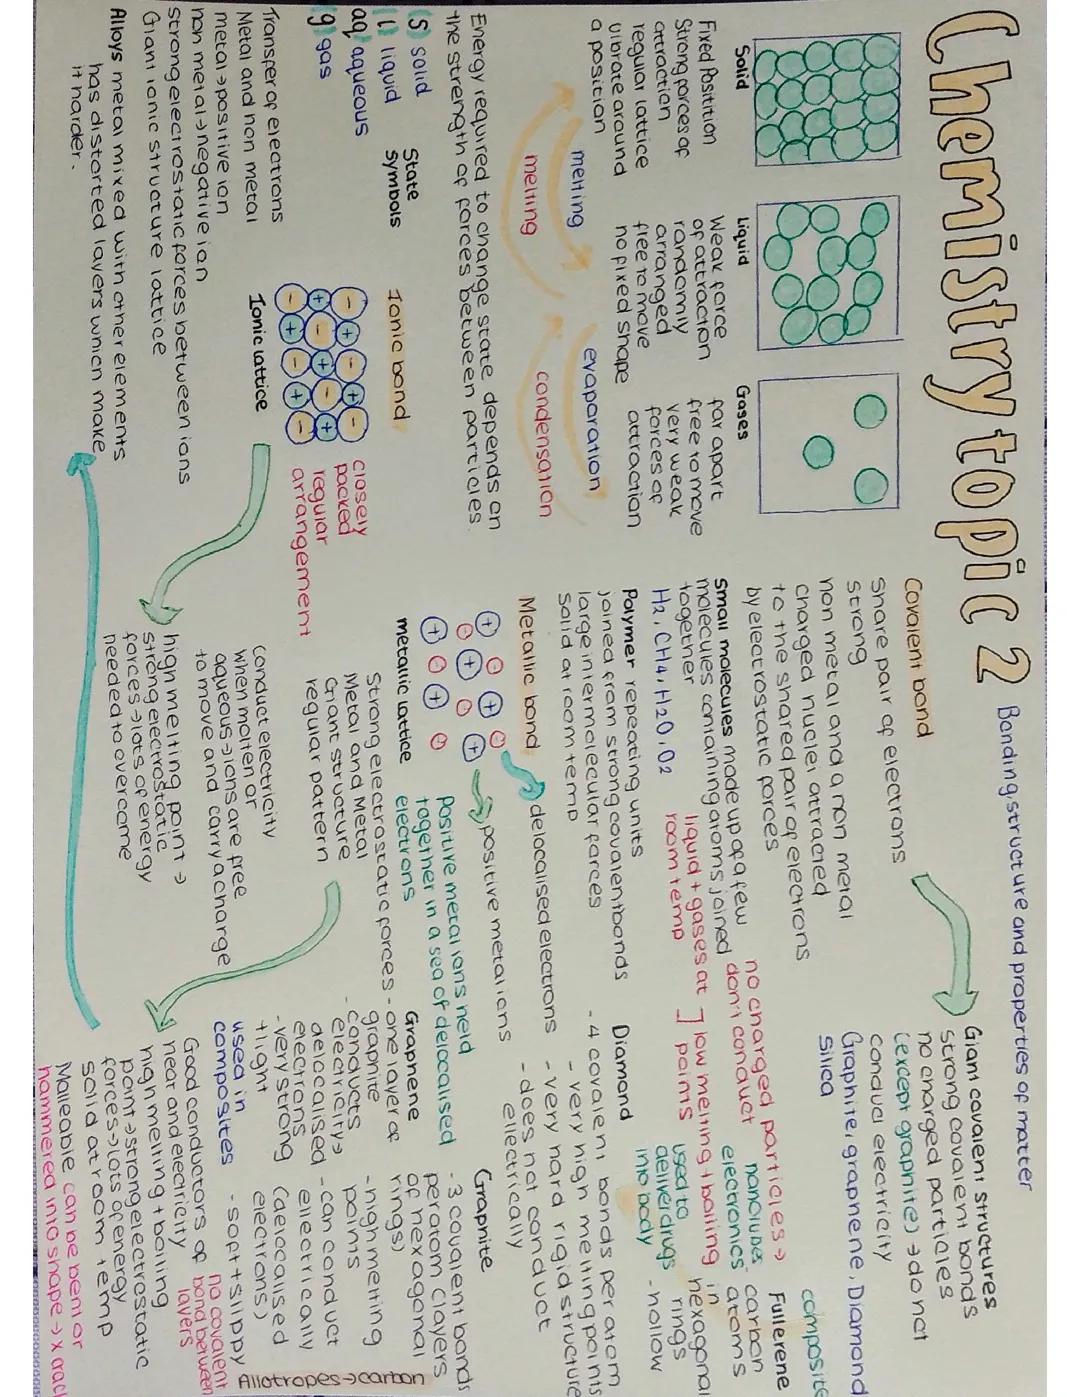 Chemistry topic 2
Bonding, structure and properties of matter
Solid
Fixed Position
Strong forces of
attraction
regular lattice
vibrate around
a position
Liquid
Weak force
of attraction
randomly
arranged
free to move
no fixed shape
Gases
far apart
free to move
very weak
forces of
attraction
melting
melting
evaporation
condensation
Energy required to change state depends on
the strength of forces between particles.
(s) solid
(l) liquid
aq) aqueous
(g) gas
State
symbols
Ionic bond
closely
packed
regular
arrangement
Ionic lattice
Transfer of electrons
Metal and non metal
metal→positive ion
non metal→negative ion
strong electrostatic forces between ions
Giant ionic structure lattice
Conduct electricity
when molten or
aqueous→ions are free
to move and carry a charge
high melting point →
strong electrostatic
forces→lots of energy
needed to overcome
Alloys metal mixed with other elements
has distorted layers which make
it harder.
Covalent bond
Share pair of electrons
strong
non metal and a non metal
charged nuclei attracted
to the shared pair of electrons
by electrostatic forces
Small molecules made up of a few
molecules containing atoms joined
together
H2, CH4, H2O, O2
liquid + gases at
room temp
] low melting + boiling
points
no charged particles→
don't conduct
Polymer repeating units
joined from strong covalent bonds
large intermolecular forces
Solid at room temp
Metallic bond
→ delocalised electrons
→ positive metal ions
metallic lattice
Positive metal ions held
together in a sea of delocalised
electrons
Strong electrostatic forces
Metal and Metal
Giant structure
regular pattern
Good conductors of
heat and electricity
high melting + boiling
point→strong electrostatic
forces→lots of energy
solid at room temp
Malleable can be bent or
hammered into shape → x crac
Giant covalent structures
strong covalent bonds
no charged particles
(except graphite) → do not
conduct electricity
Graphite, graphene, Diamond
Silica
Diamond
- 4 covalent bonds per atom
- very high melting points
- very hard rigid structure
- does not conduct
electrically
nanotubes
electronics
used to
deliver drugs
into body
composite
Fullerene
carbon
atoms
in
hexagonal
rings
- hollow
Graphene
- one layer of
graphite
- conducts
electricity→
delocalised
electrons
- very strong
+ light
used in
composites
Graphite
- 3 covalent bonds
per atom (layers
of hexagonal
rings)
- high melting
points
- can conduct
electrically
(delocalised
electrons)
- soft + slippy
no covalent
bond between
layers
Allotropes→carbon